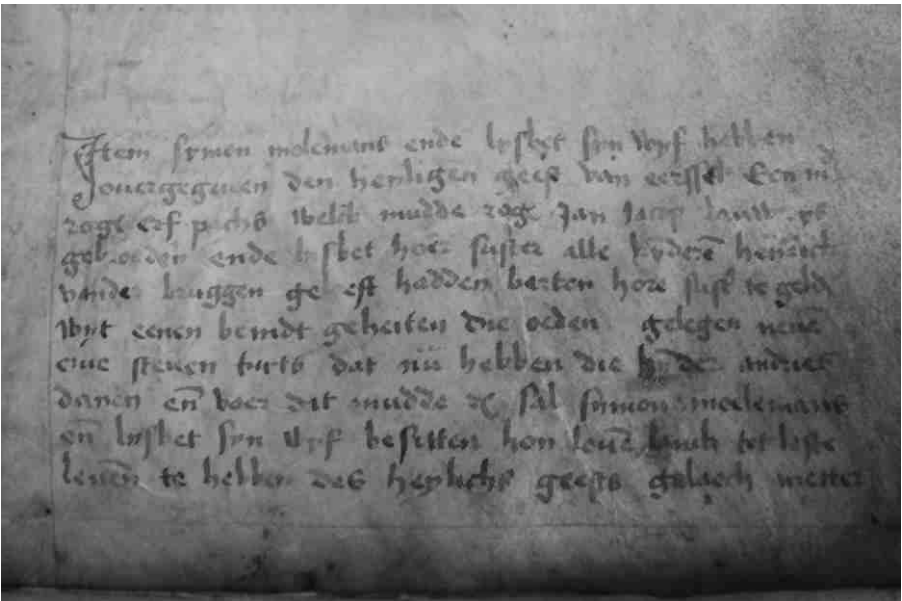 Item symon molemans ende lysbet syn wyf hebben
overgegeven den heyligen geest van eerssel Een m
rogs erf pachs welck mudde rogs Jan Jacop
gebroeden ende lysbet hoer suster alle kyndere henrick
vander bruggen geeest hadden berten hore sust te geld
wyt eenen bemdt geheiten die oeden gelegen neve
erve steven torts dat nu hebben die kynder andries
danen en voer dit mudde sal symon moelemans
en lysbet syn wyf besitten hon leve lanck tot leste
leven te hebben des heylichs geests gelaech metter